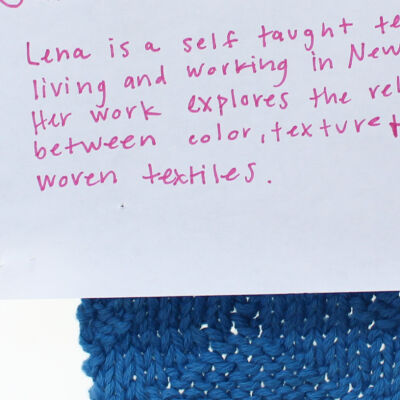 Lena is a self taught te
living and working in New
Her work explores the rel
between color, texture +
woven textiles.